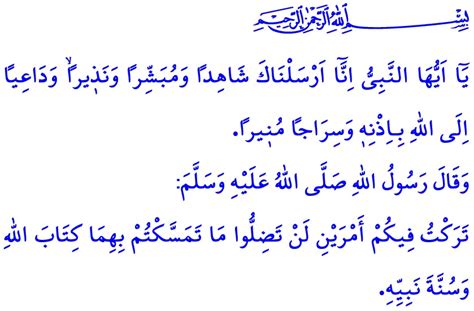 بِسْمِ اللهِ الرَّحْمٰنِ الرَّحِيمِ
يَٓا اَيُّهَا النَّبِيُّ اِنَّٓا اَرْسَلْنَاكَ شَاهِداً وَمُبَشِّراً وَنَذ۪يراًۙ وَدَاعِياً
اِلَى اللهِ بِاِذْنِه۪ وَسِرَاجاً مُن۪يراً.
وَقَالَ رَسُولُ اللهِ صَلَّى اللهُ عَلَيْهِ وَسَلَّمَ:
تَرَكْتُ فِيكُمْ أَمْرَيْنِ لَنْ تَضِلُّوا مَا تَمَسَّكْتُمْ بِهِمَا كِتَابَ اللهِ
وَسُنَّةَ نَبِيِّهِ.